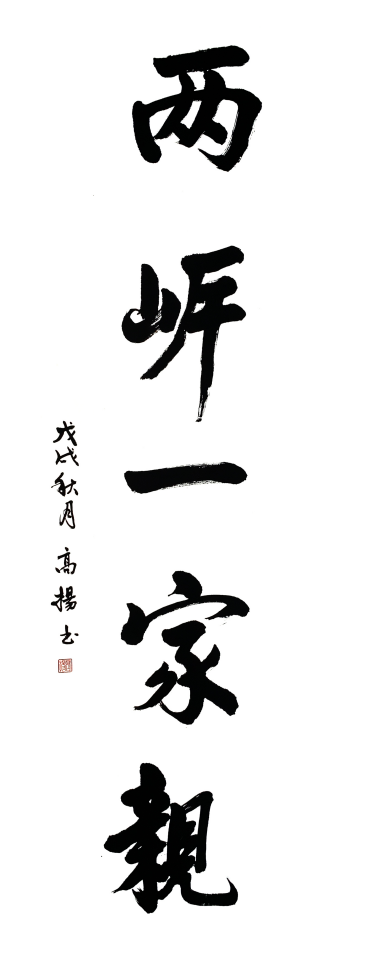 两岸一家親
戊戌秋月 高揚书